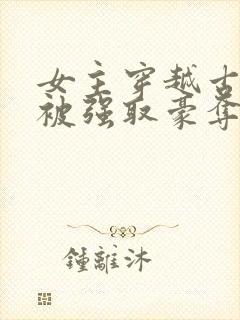 女主穿越古
被强取豪夺
鍾離沐